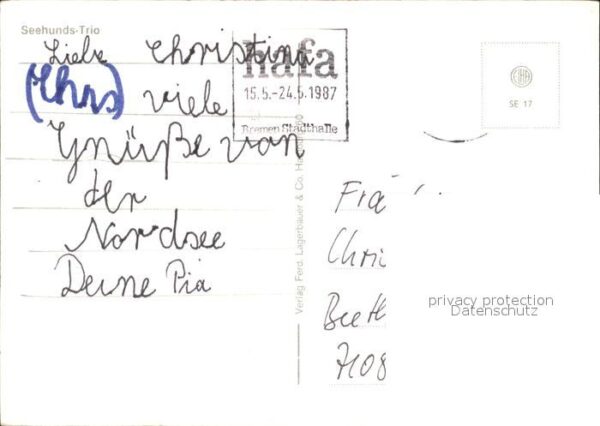 Seehunds-Trio
Liebe Christina
(Chris) viele
Grüße von
der
Nordsee
Deine Pia
hafa
15.5.-24.5.1987
Bremen Stadthalle
Verlag Ferd. Lagerbauer & Co.
SE 17
Frä
Chri
7108
privacy protection
Datenschutz